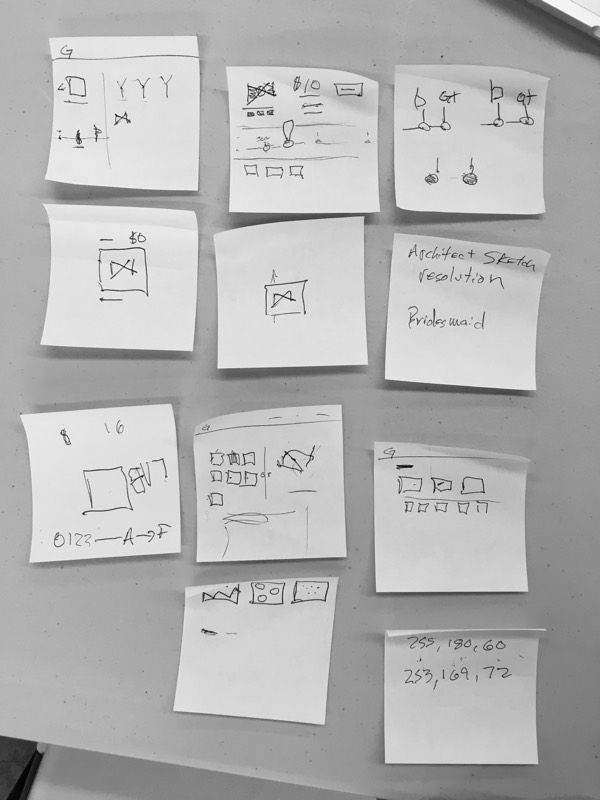 G
Y Y Y
$10
b G+
b g+
$0
Architect Sketch
resolution
Bridesmaid
8 16
0122 — A → F
G
or
G
255, 180, 60
253, 169, 72